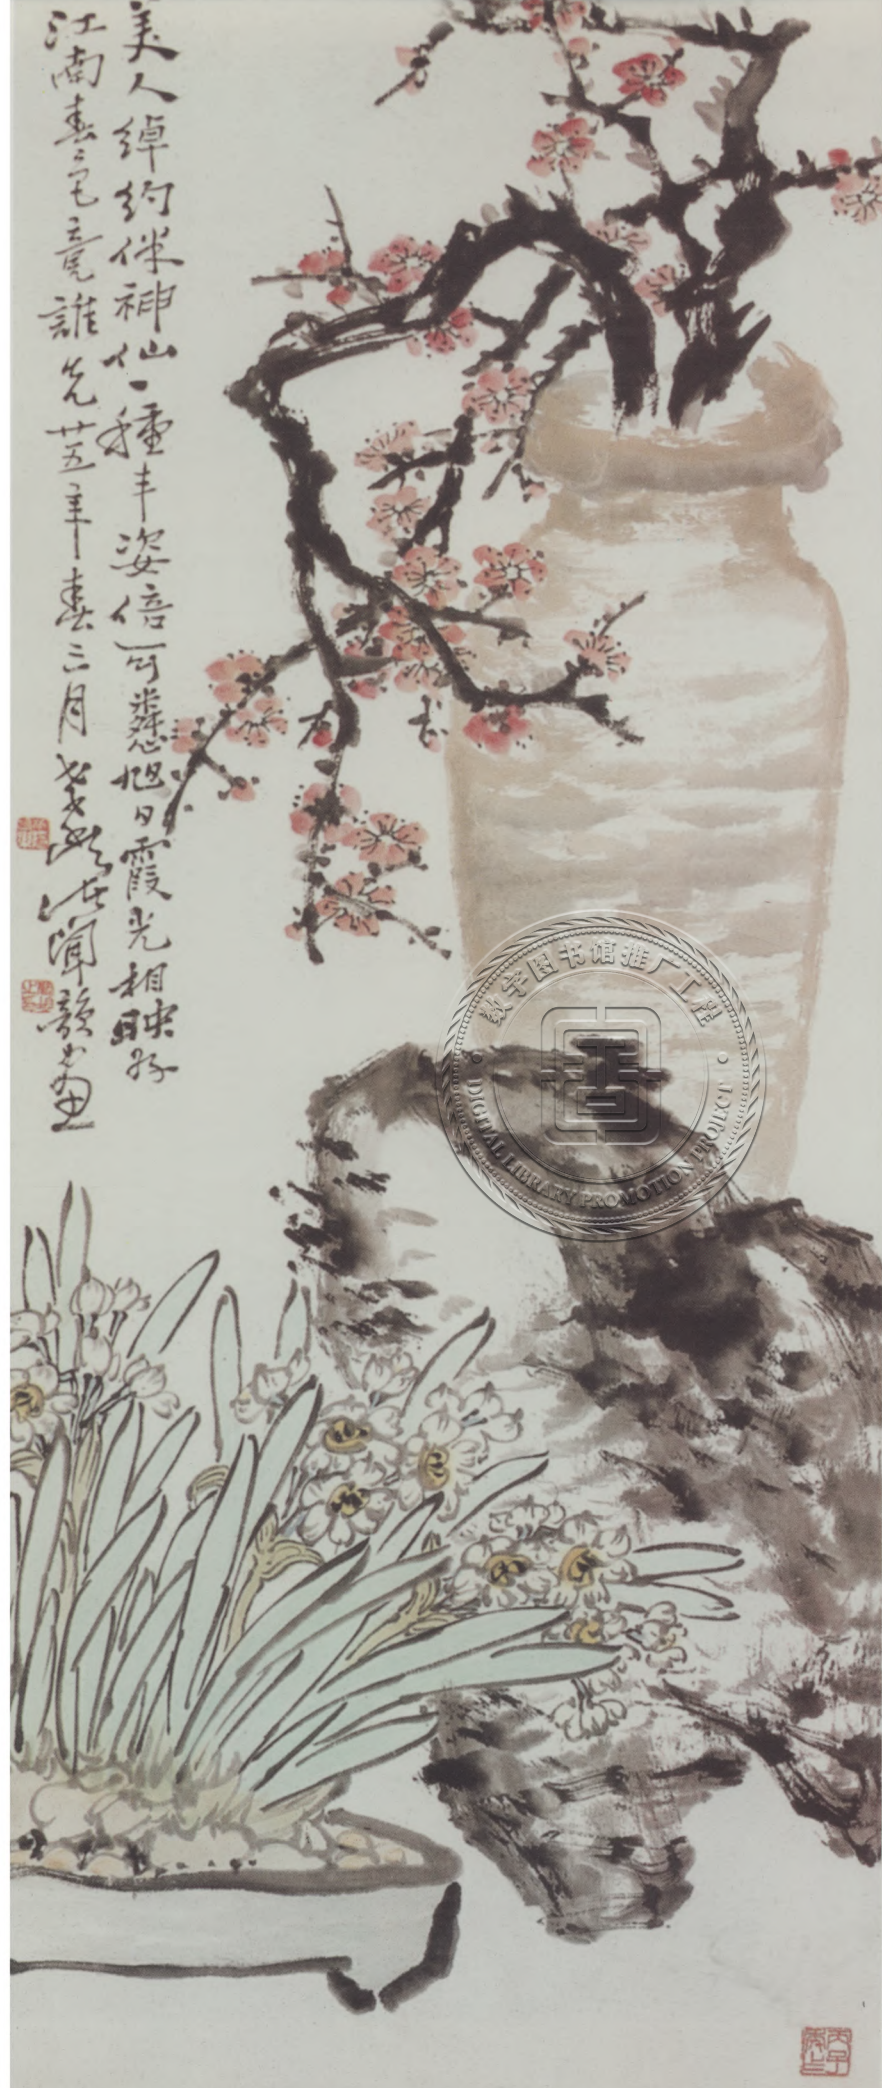 美人綽約伴神仙一種丰姿倍可憐旭日霞光相映好
江南春色竟誰先廿五年春三月
汪聞韻畫
數字图书馆推广工程
DIGITAL LIBRARY PROMOTION PROJECT